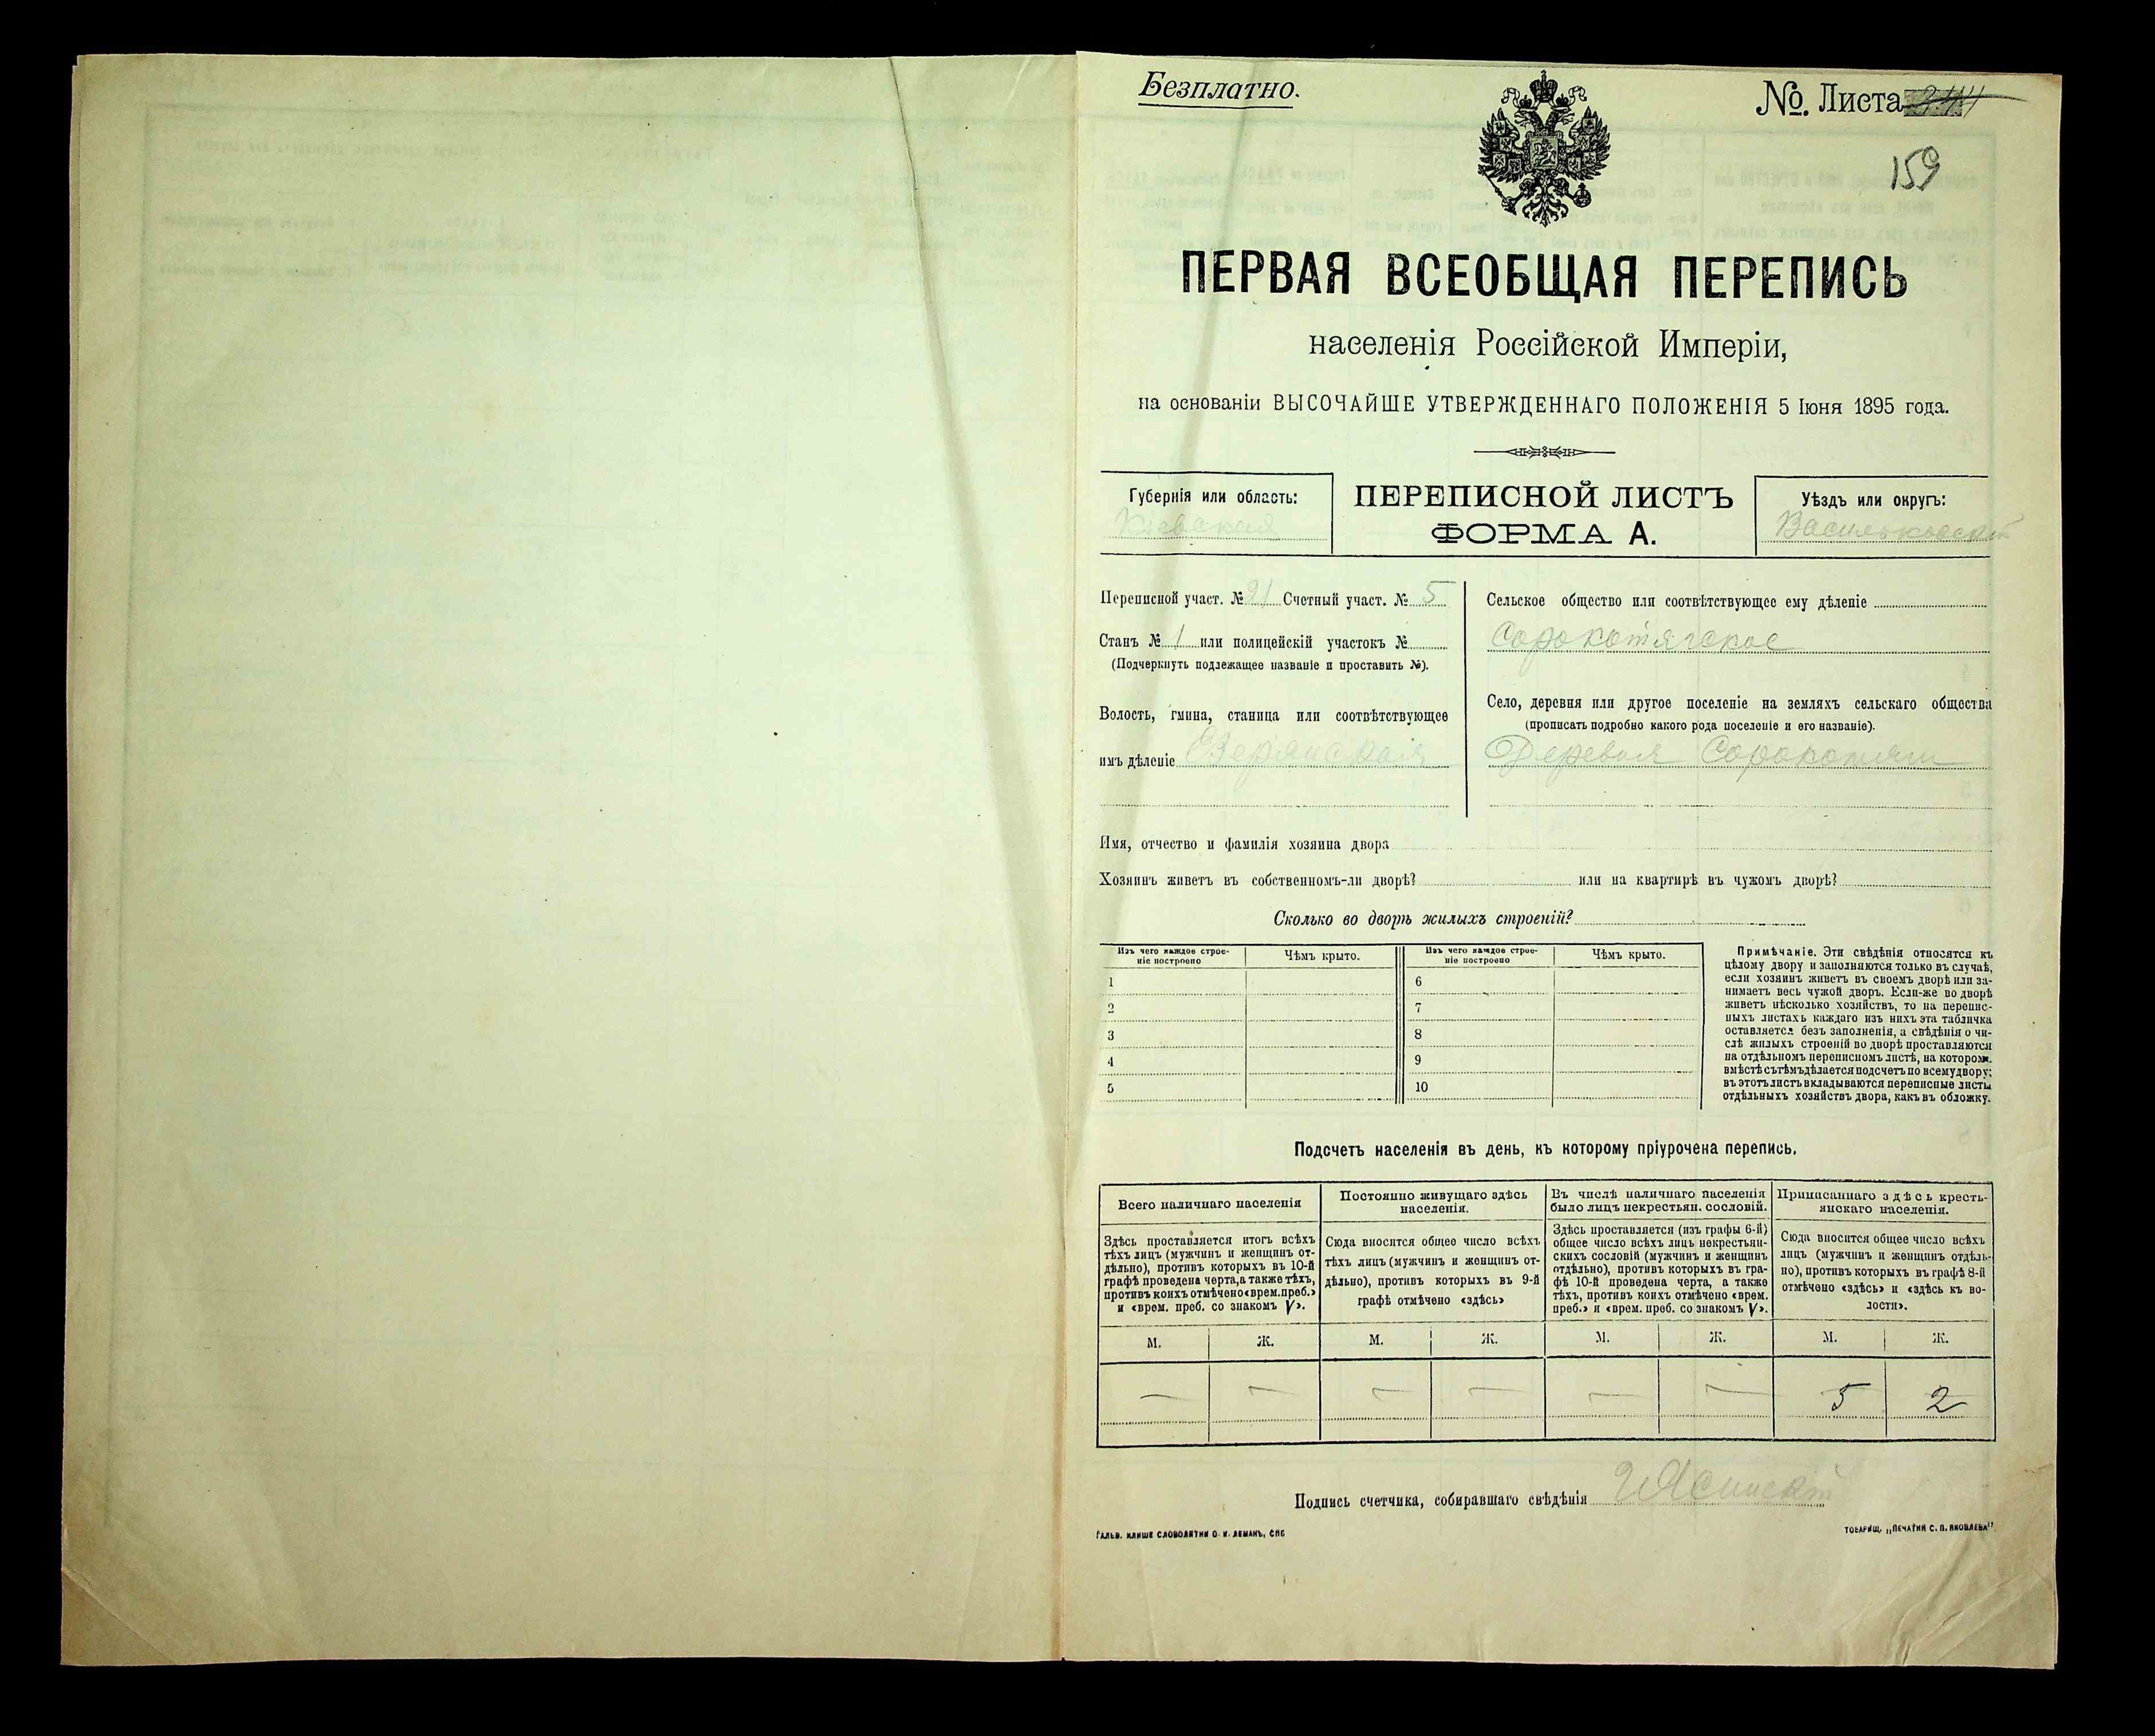 Безплатно.
№. Листа
159
ПЕРВАЯ ВСЕОБЩАЯ ПЕРЕПИСЬ
населенія Россійской Имперіи,
на основаніи ВЫСОЧАЙШЕ УТВЕРЖДЕННАГО ПОЛОЖЕНІЯ 5 Іюня 1895 года.
Губернія или область:
Кіевская
ПЕРЕПИСНОЙ ЛИСТЪ
ФОРМА А.
Уѣздъ или округъ:
Васильковскій
Переписной участ. № 21 Счетный участ. № 5
Станъ № 1 или полицейскій участокъ №
(Подчеркнуть подлежащее названіе и проставить №).
Волость, гмина, станица или соотвѣтствующее
имъ дѣленіе Езерянская
Сельское общество или соотвѣтствующее ему дѣленіе
Сорокотягское
Село, деревня или другое поселеніе на земляхъ сельскаго общества
(прописать подробно какого рода поселеніе и его названіе).
Деревня Сорокотяги
Имя, отчество и фамилія хозяина двора
Хозяинъ живетъ въ собственномъ-ли дворѣ? или на квартирѣ въ чужомъ дворѣ?
Сколько во дворѣ жилыхъ строеній?
Изъ чего каждое строе-
ніе построено
Чѣмъ крыто.
1
2
3
4
5
Изъ чего каждое строе-
ніе построено
Чѣмъ крыто.
6
7
8
9
10
Примѣчаніе. Эти свѣдѣнія относятся къ
цѣлому двору и заполняются только въ случаѣ,
если хозяинъ живетъ въ своемъ дворѣ или за-
нимаетъ весь чужой дворъ. Если-же во дворѣ
живетъ нѣсколько хозяйствъ, то на перепис-
ныхъ листахъ каждаго изъ нихъ эта табличка
оставляется безъ заполненія, а свѣдѣнія о чи-
слѣ жилыхъ строеній во дворѣ проставляются
на отдѣльномъ переписномъ листѣ, на которомъ
вмѣстѣ съ тѣмъ дѣлается подсчетъ по всему двору;
въ этотъ листъ вкладываются переписные листы
отдѣльныхъ хозяйствъ двора, какъ въ обложку.
Подсчетъ населенія въ день, къ которому пріурочена перепись.
Всего наличнаго населенія
Здѣсь проставляется итогъ всѣхъ
тѣхъ лицъ (мужчинъ и женщинъ от-
дѣльно), противъ которыхъ въ 10-й
графѣ проведена черта, а также тѣхъ,
противъ коихъ отмѣчено «врем. преб.»
и «врем. преб. со знакомъ V».
М. Ж.
— —
Постоянно живущаго здѣсь
населенія.
Сюда вносится общее число всѣхъ
тѣхъ лицъ (мужчинъ и женщинъ от-
дѣльно), противъ которыхъ въ 9-й
графѣ отмѣчено «здѣсь»
М. Ж.
— —
Въ числѣ наличнаго населенія
было лицъ некрестьян. сословій.
Здѣсь проставляется (изъ графы 6-й)
общее число всѣхъ лицъ некрестьян-
скихъ сословій (мужчинъ и женщинъ
отдѣльно), противъ которыхъ въ гра-
фѣ 10-й проведена черта, а также
тѣхъ, противъ коихъ отмѣчено «врем.
преб.» и «врем. преб. со знакомъ V».
М. Ж.
— —
Приписаннаго здѣсь кресть-
янскаго населенія.
Сюда вносится общее число всѣхъ
лицъ (мужчинъ и женщинъ отдѣль-
но), противъ которыхъ въ графѣ 8-й
отмѣчено «здѣсь» и «здѣсь къ во-
лости».
М. Ж.
5 2
Подпись счетчика, собиравшаго свѣдѣнія Ясинскій
ГАЛЬВ. КЛИШЕ СЛОВОЛИТНИ О. И. ЛЕМАНЪ, СПБ
ТОВАРИЩ. „ПЕЧАТНИ С. П. ЯКОВЛЕВА"